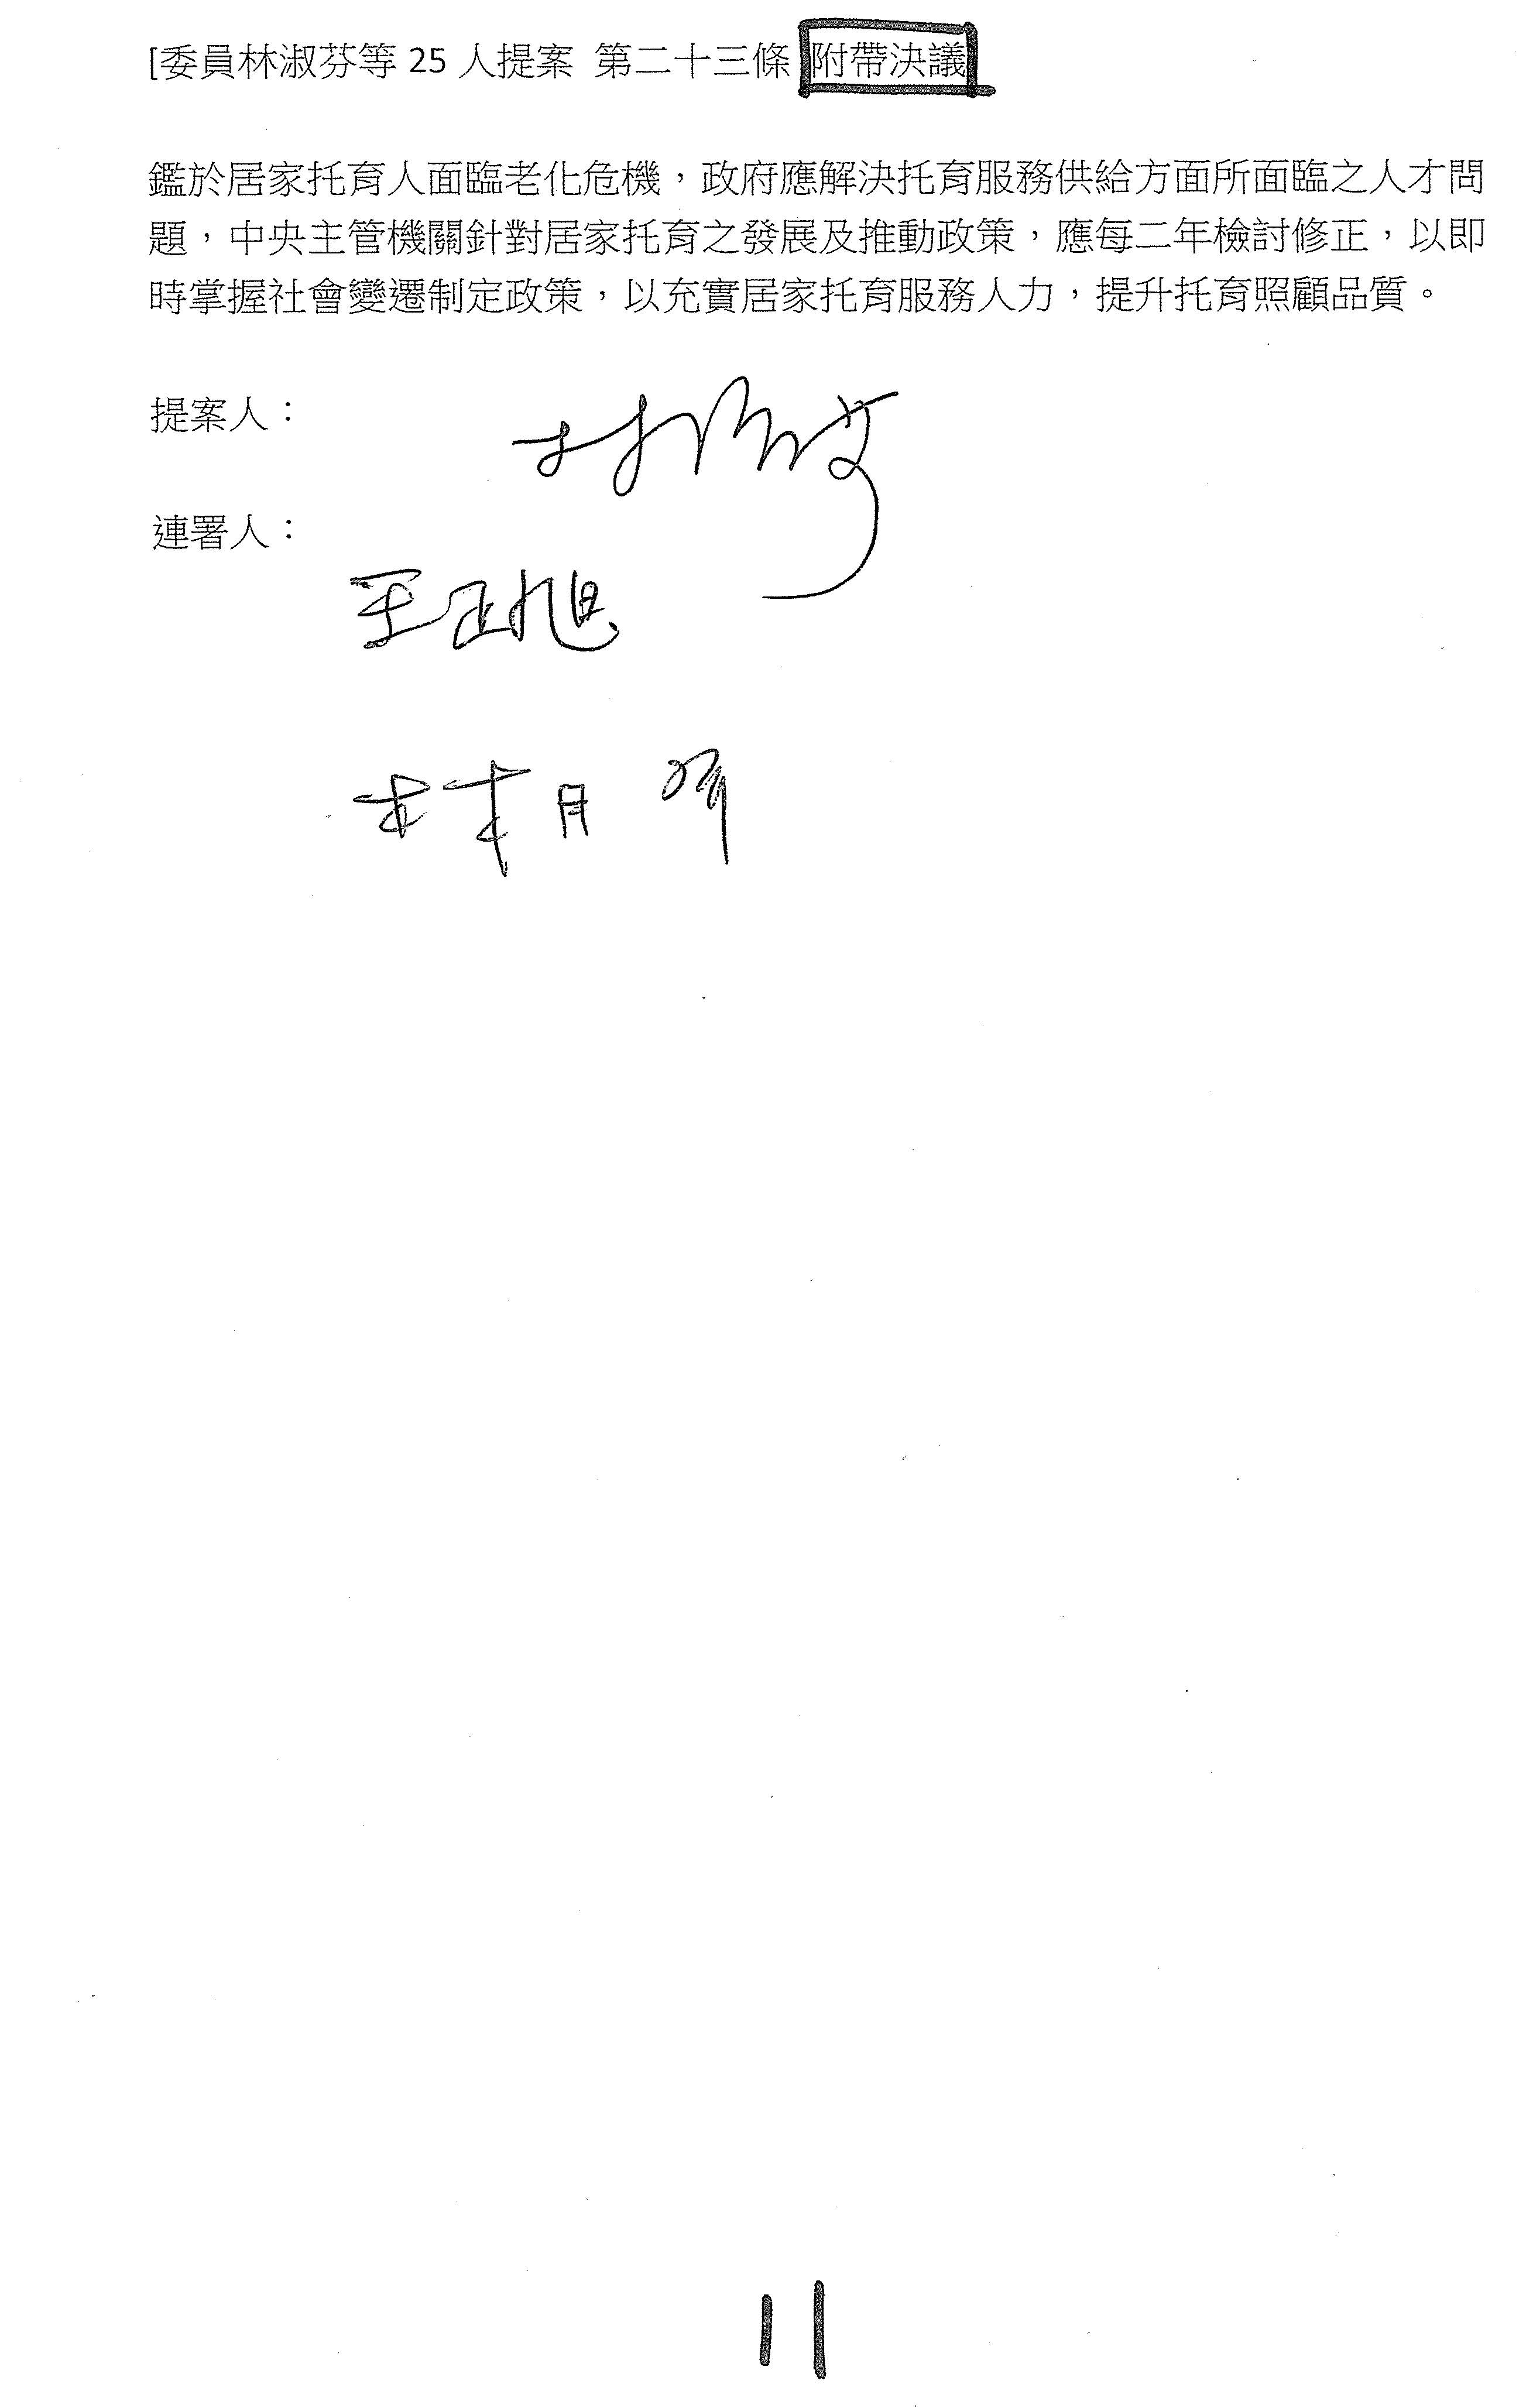 [委員林淑芬等 25 人提案 第二十三條 附帶決議
鑑於居家托育人面臨老化危機，政府應解決托育服務供給方面所面臨之人才問
題，中央主管機關針對居家托育之發展及推動政策，應每二年檢討修正，以即
時掌握社會變遷制定政策，以充實居家托育服務人力，提升托育照顧品質。
提案人：
林淑芬
連署人：
王正旭
林月琴
11